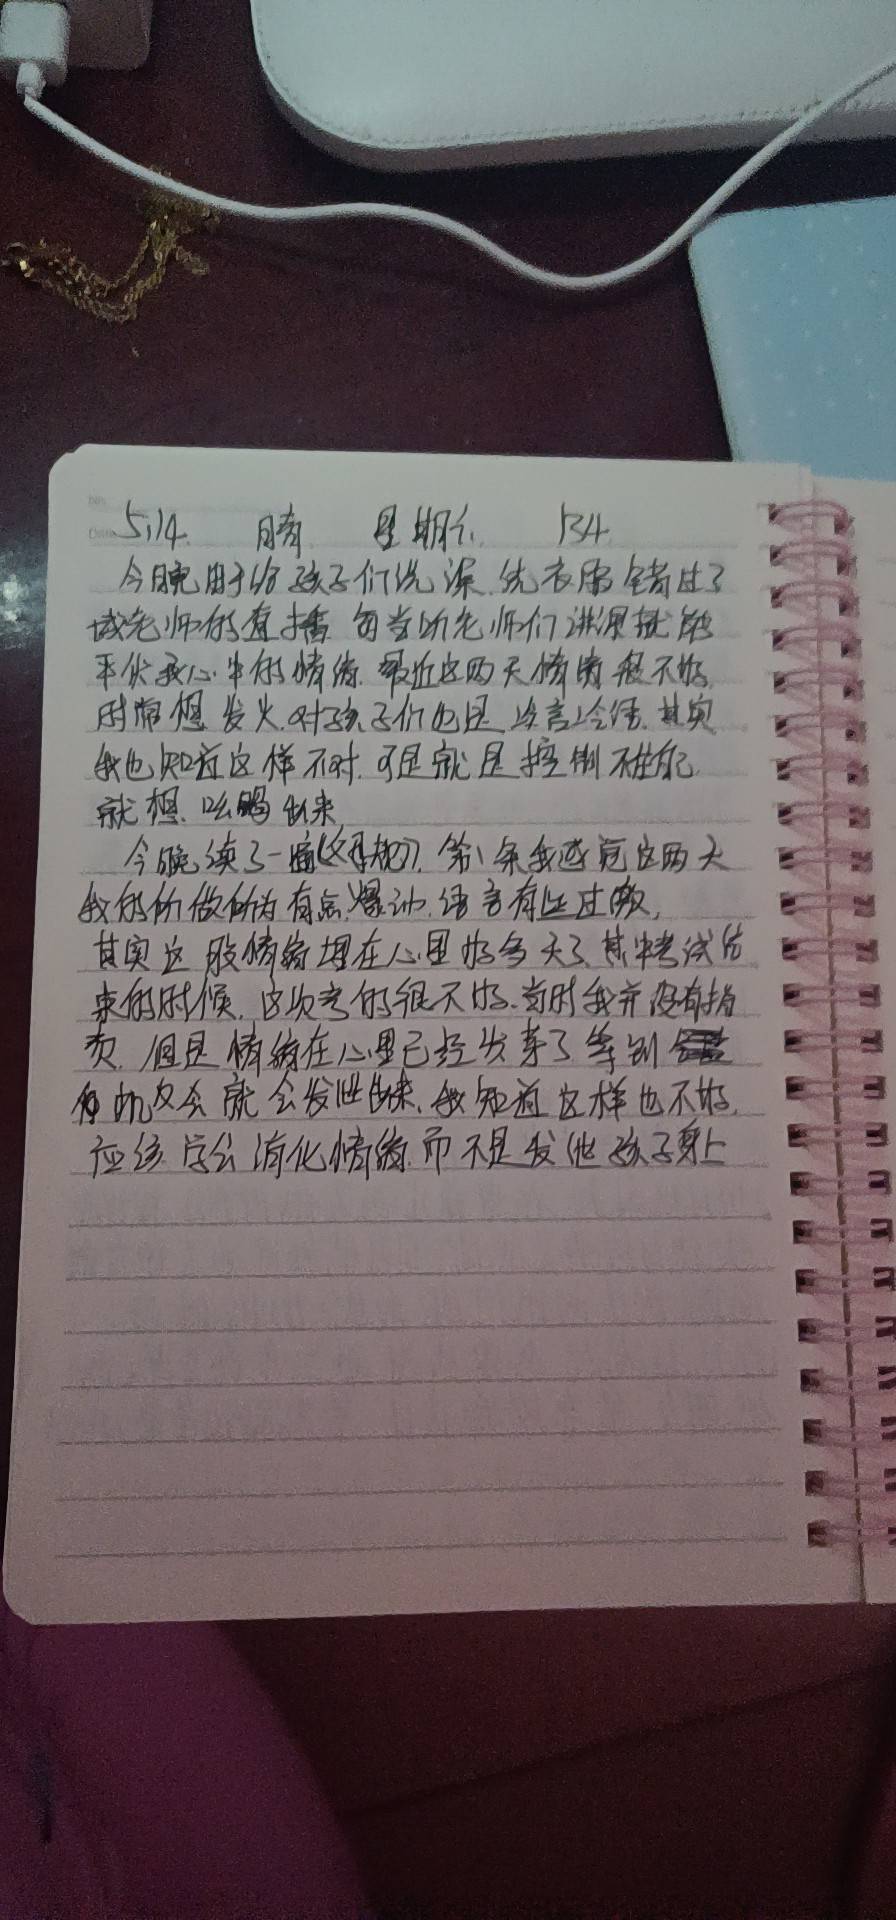 5.14. 晴 星期 134
今晚由于给孩子们洗澡.洗衣服错过了
域老师的直播.每当听老师们讲课就能
平伏我心中的情绪.最近这两天情绪很不好.
时常想发火.对孩子们也是冷言冷语.其实
我也知道这样不对.可是就是控制不住自己
就想.吆喝出来
今晚读了一遍《父母规》.第1条我感觉这两天
我的所做所为有点.爆动.语言有些过激,
其实这股情绪埋在心里好多天了.其中考试结
束的时候.这次考的很不好.当时我并没有指
责.但是情绪在心里已经发芽了等到
有机会就会发泄出来.我知道这样也不好.
应该学会消化情绪.而不是发泄孩子身上